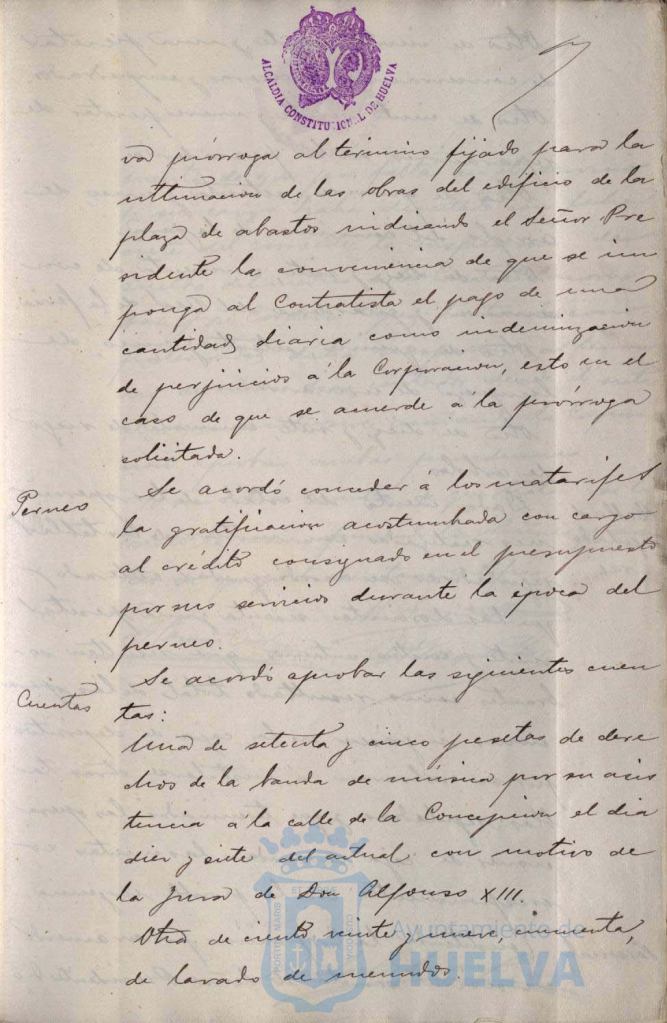 ALCALDIA CONSTITUCIONAL DE HUELVA
va prórroga al termino fijado para la
ultimacion de las obras del edificio de la
plaza de abastos indicando el Señor Pre
sidente la conveniencia de que se im
ponga al Contratista el pago de una
cantidad diaria como indemnizacion
de perjuicios á la Corporacion, esto en el
caso de que se acuerde á la prórroga
solicitada.
Perneo
Se acordó conceder á los matarifes
la gratificacion acostumbada con cargo
al crédito consignado en el presupuesto
por sus servicios durante la época del
perneo.
Cuentas
Se acordó aprobar las siguientes cuen
tas:
Una de setenta y cinco pesetas de dere
chos de la banda de música por su asis
tencia á la calle de la Concepcion el dia
diez y siete del actual con motivo de
la Jura de Don Alfonso XIII.
Otra de ciento veinte y nueve, cincuenta,
de lavado de menudos.
Ayuntamiento de
HUELVA